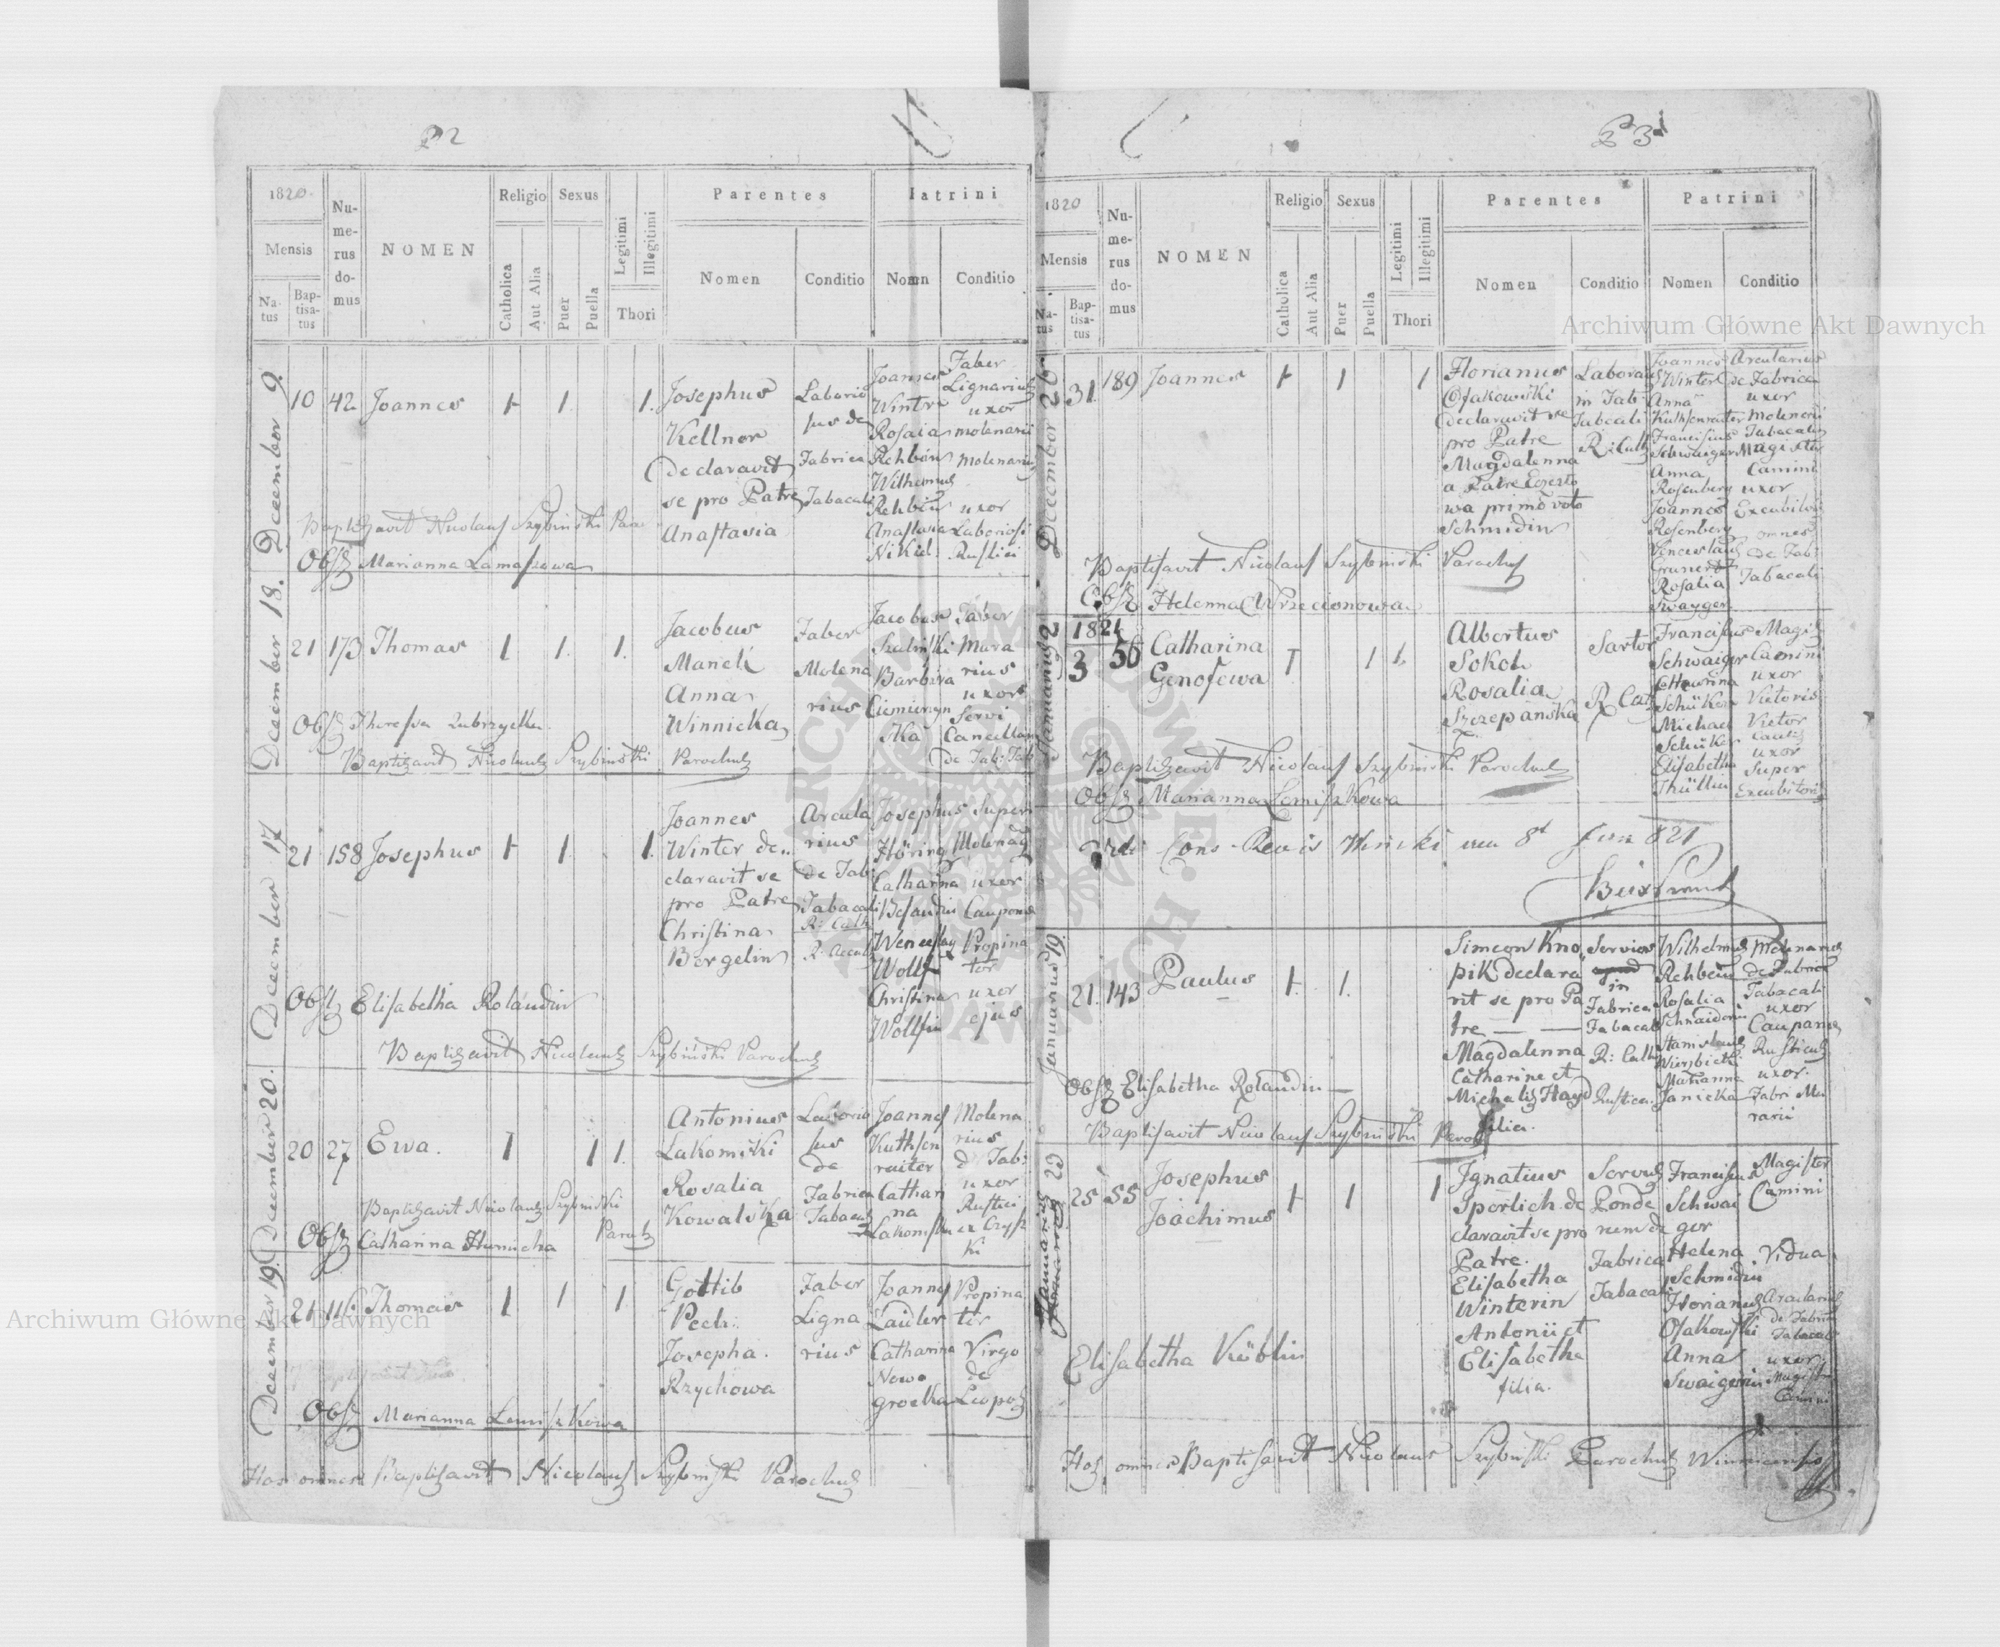 P 2
1820
Mensis
Na-
tus
Bap-
tisa-
tus
Nu-
me-
rus
do-
mus
NOMEN
Religio
Catholica
Aut Alia
Sexus
Puer
Puella
Legitimi
Illegitimi
Thori
Parentes
Nomen
Conditio
Patrini
Nomen
Conditio
December 9.
10 42 Joannes 1 1. 1.
Josephus
Kellner
declaravit
se pro Patre
Anastasia
Laborio
sus de
Fabrica
Tabacali
Joannes
Winter
Rosalia
Rehbein
Wilhemus
Rehbein
Anastasia
Nikiel
Faber
Lignarius
uxor
molenarii
Molenarius
uxor
Laboriosi
Rustici
Baptizavit Nicolaus Szybinski Paro
Obst Marianna Lamaszowa
December 18.
21 173 Thomas 1 1. 1.
Jacobus
Manek
Anna
Winnicka
Faber
Molena
rius
Jacobus
Szaliński
Barbara
Ciemierzyn
ska
Faber
Mura
rius
uxor
Servi
Cancellari
de Tab: Tab
Obst Theresia
Baptizavit Nicolaus Szybinski Parochus
December 17
21 158 Josephus 1 1. 1.
Joannes
Winter de
claravit se
pro Patre
Christina
Bergelin
Arcula
rius
de Fab:
Tabacali
R: Cath
Josephus
Höring
Catharina
Wenceslaus
Wolf
Christina
Wolfin
Super
Molenary
uxor
Caupona
Propina
tor
uxor
ejus
Obst Elisabetha Rolandin
Baptizavit Nicolaus Szybiński Parochus
December 20.
20 27 Ewa. 1 1 1.
Antonius
Lakomski
Rosalia
Kowalska
Laborio
sus
de
Fabrica
Tabacali
Joannes
Kuthsen
raiter
Cathari
na
Lakomska
Molena
rius
d Tab:
uxor
Rustici
ex Czysz
ki
Baptizavit Nicolaus Szybinski
Paroch
Obst Catharina Humicka
December 19.
21 Thomas 1 1 1
Gottlib
Pech.
Josepha.
Rzychowa
Faber
Ligna
rius
Joannes
Lauter
Catharina
Nowo
grocka
Propina
tor
Virgo
de
Leopol
Obst Marianna Lemiszkowa
Hos omnes Baptisavit Nicolaus Szybinski Parochus
P 3
1820
Mensis
Na-
tus
Bap-
tisa-
tus
Nu-
me-
rus
do-
mus
NOMEN
Religio
Catholica
Aut Alia
Sexus
Puer
Puella
Legitimi
Illegitimi
Thori
Parentes
Nomen
Conditio
Patrini
Nomen
Conditio
December 26
31. 189 Joannes 1 1 1
Florianus
Osakowski
declaravit se
pro Patre
Magdalenna
a Patre
wa primo voto
Schmidin
Laborans
in Fab:
Tabacali
R: Cath
Joannes
Winter
Anna
Kuthsenraiter
Franciscus
Schwaiger
Anna
Rosenberg
Joannes
Rosenberg
Venceslaus
Grunert
Rosalia
Swayger
Arcularius
de Fabrica
uxor
Molenarii
Tabacalis
Magister
Camini
uxor
Excubitor
omnes
de Fab:
Tabacali
Baptisavit Nicolaus Szybinski Parochus
Obst Helenna Wrzecionowa
Januarius 2
1821
3 56 Catharina
Genofewa 1 1 1.
Albertus
Sokol
Rosalia
Szczepańska
Sartor
R Cat
Franciscus
Schwaiger
Schüker
Michael
Schüker
Elisabetha
Thüllin
Magis
Camini
uxor
Victoris
Victor
uxor
Super
Excubitoris
Baptizavit Nicolaus Szybinski Parochus
Obst Marianna Lemiszkowa
Januarius 19.
21. 143 Paulus 1. 1.
Simeon Kno
pik declara
vit se pro Pa
tre — —
Magdalenna
Catharine et
Michalis Hayd
filia.
Serviens
in
Fabrica
Tabacali
R: Cath
Rustica
Wilhelmus
Rehbein
Rosalia
Schnaiderin
Stanislaus
Wierzbicki
Marianna
Janicka
Molenarius
de Fabrica
Tabacali
uxor
Caupana
Rusticus
uxor.
Fabri Mu
rarii
Obst Elisabetha Rolandin
Baptisavit Nicolaus Szybinski Paroch
Januarius 23
25 55 Josephus
Joachimus 1 1 1
Ignatius
Sperlich de
claravit se pro
Patre.
Elisabetha
Winterin
Antonii et
Elisabetha
filia.
Servus
Ponde
rum de
Fabrica
Tabacali
Franciscus
Schwai
ger
Helena
Schmidin
Florianus
Osakowski
Anna
Swaigerin
Magister
Camini
Vidua
Arcularius
de Fabrica
Tabacali
uxor
Magistri
Camini
Elisabetha Küblin
Hos omnes Baptisavit Nicolaus Szybinski Parochus Winnicensis
Archiwum Główne Akt Dawnych
Archiwum Główne Akt Dawnych
ARCHIWUM GŁÓWNE AKT DAWNYCH